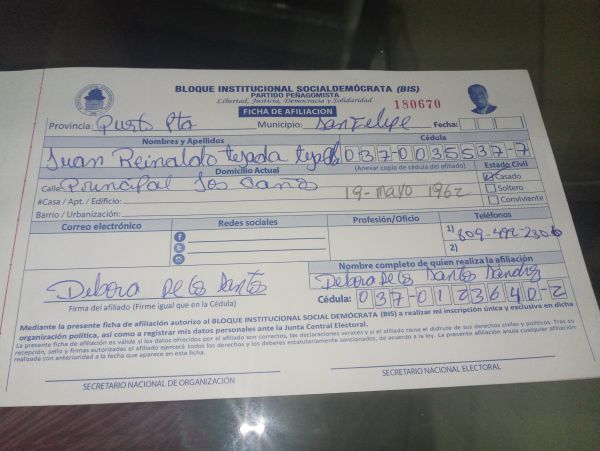 BLOQUE INSTITUCIONAL SOCIALDEMÓCRATA (BIS)
PARTIDO PEÑAGOMISTA
Libertad, Justicia, Democracia y Solidaridad
FICHA DE AFILIACIÓN
180670
Provincia: Puerto Pta Municipio: San Felipe Fecha:
Nombres y Apellidos Cédula
Juan Reinaldo tejada tejada 037-0035537-7
Domicilio Actual (Anexar copia de cédula del afiliado) Estado Civil
Calle Principal Los Casado
#Casa / Apt. / Edificio: 19-mayo 1962 Soltero
Barrio / Urbanización: Conviviente
Correo electrónico Redes sociales Profesión/Oficio Teléfonos
1) 809-492-2306
2)
Nombre completo de quien realiza la afiliación
Debora de los Santos Debora de los Santos Sandez
Firma del afiliado (Firme igual que en la Cédula) Cédula: 037-0123640-2
Mediante la presente ficha de afiliación autorizo al BLOQUE INSTITUCIONAL SOCIAL DEMÓCRATA (BIS) a realizar mi inscripción única y exclusiva en dicha
organización política, así como a registrar mis datos personales ante la Junta Central Electoral.
La presente ficha de afiliación es válida si los datos ofrecidos por el afiliado son correctos, las declaraciones veraces y si el afiliado tiene el disfrute de sus derechos civiles y políticos. Tras su
recepción, sello y firmas autorizadas el afiliado ejercerá todos los derechos y los deberes estatutariamente sancionados, de acuerdo a la ley. La presente afiliación anula cualquier afiliación
realizada con anterioridad a la fecha que aparece en esta ficha.
SECRETARIO NACIONAL DE ORGANIZACIÓN SECRETARIO NACIONAL ELECTORAL